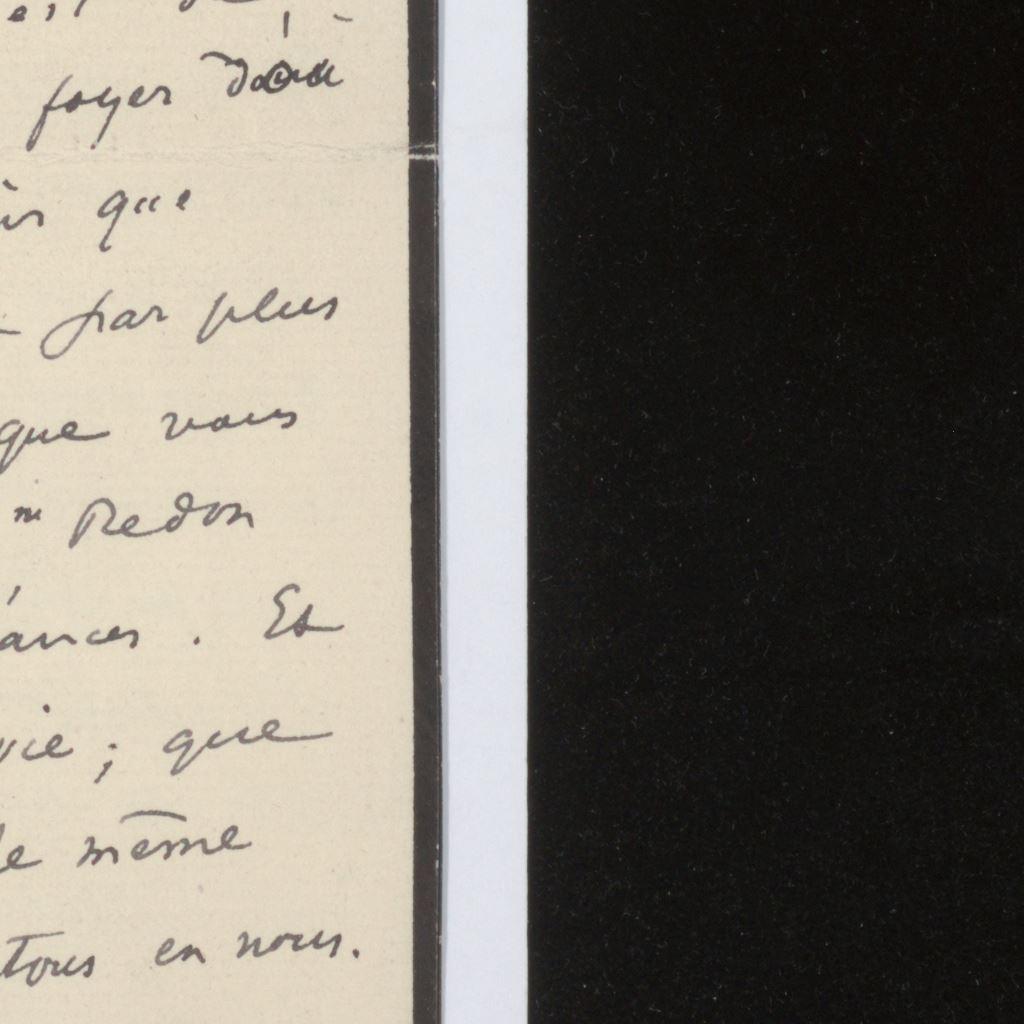 est
foyer d'où
que
par plus
que vous
Redon
. Et
vie ; que
le même
tous en nous.